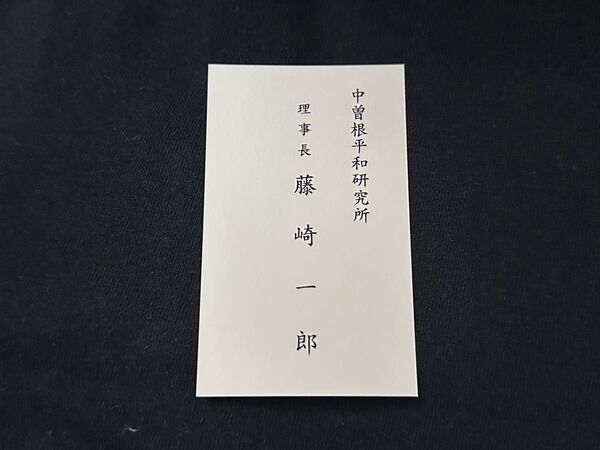 中曽根平和研究所
理事長 藤崎一郎